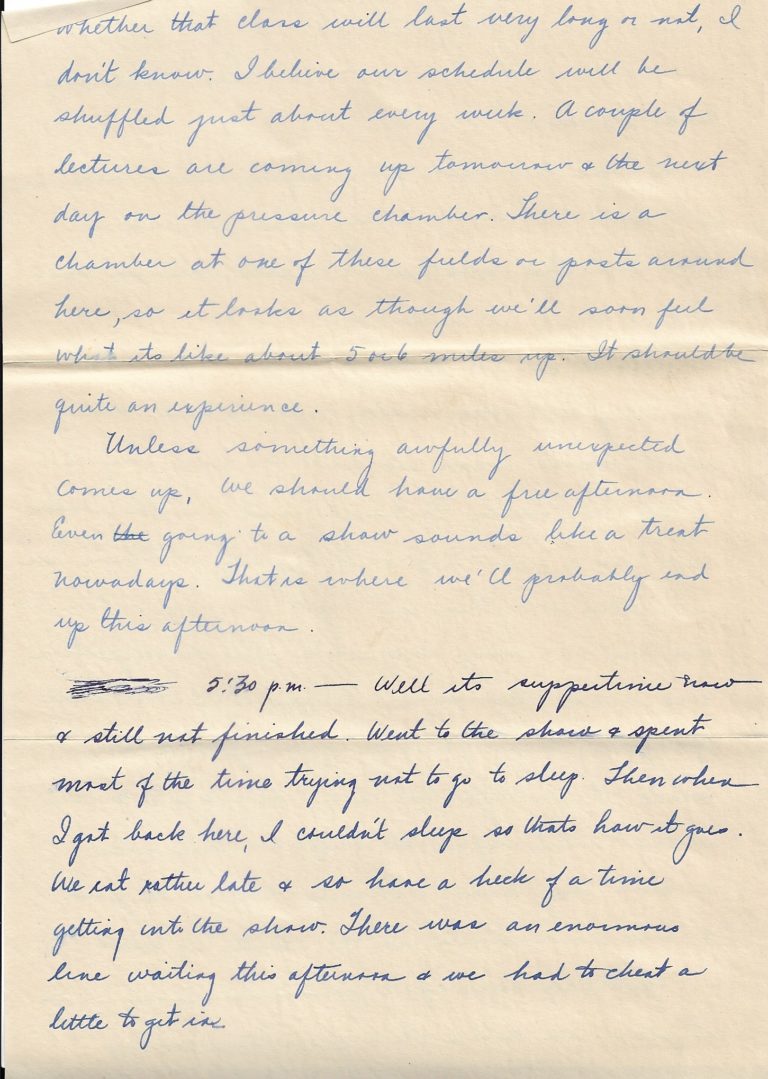 whether that class will last very long or not, I
don't know. I believe our schedule will be
shuffled just about every week. A couple of
lectures are coming up tomorrow & the next
day on the pressure chamber. There is a
chamber at one of these fields or posts around
here, so it looks as though we'll soon feel
what its like about 5 or 6 miles up. It should be
quite an experience.
Unless something awfully unexpected
comes up, we should have a free afternoon.
Even the going to a show sounds like a treat
nowadays. That is where we'll probably end
up this afternoon.
5:30 p.m. — Well its suppertime now
& still not finished. Went to the show & spent
most of the time trying not to go to sleep. Then when
I got back here, I couldn't sleep so thats how it goes.
We eat rather late & so have a heck of a time
getting into the show. There was an enormous
line waiting this afternoon & we had to cheat a
little to get in.